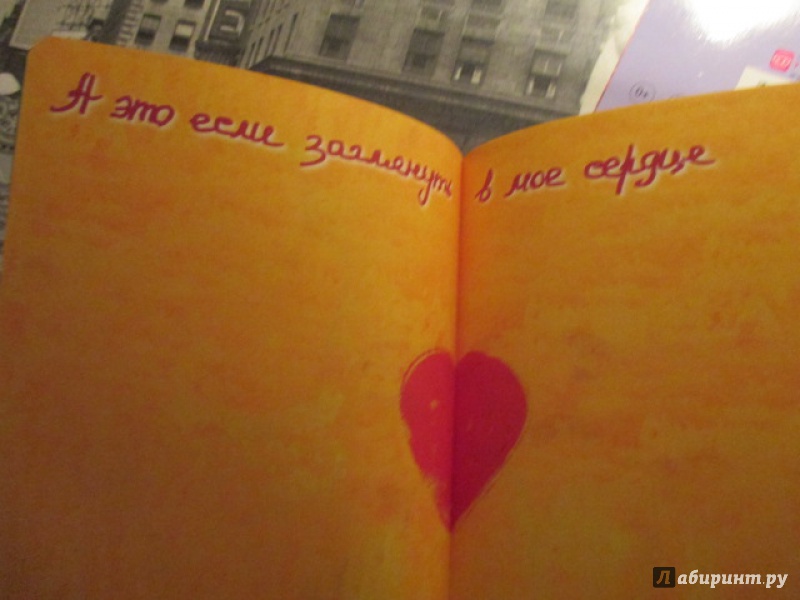 А это если заглянуть в мое сердце
0+
Лабиринт.ру